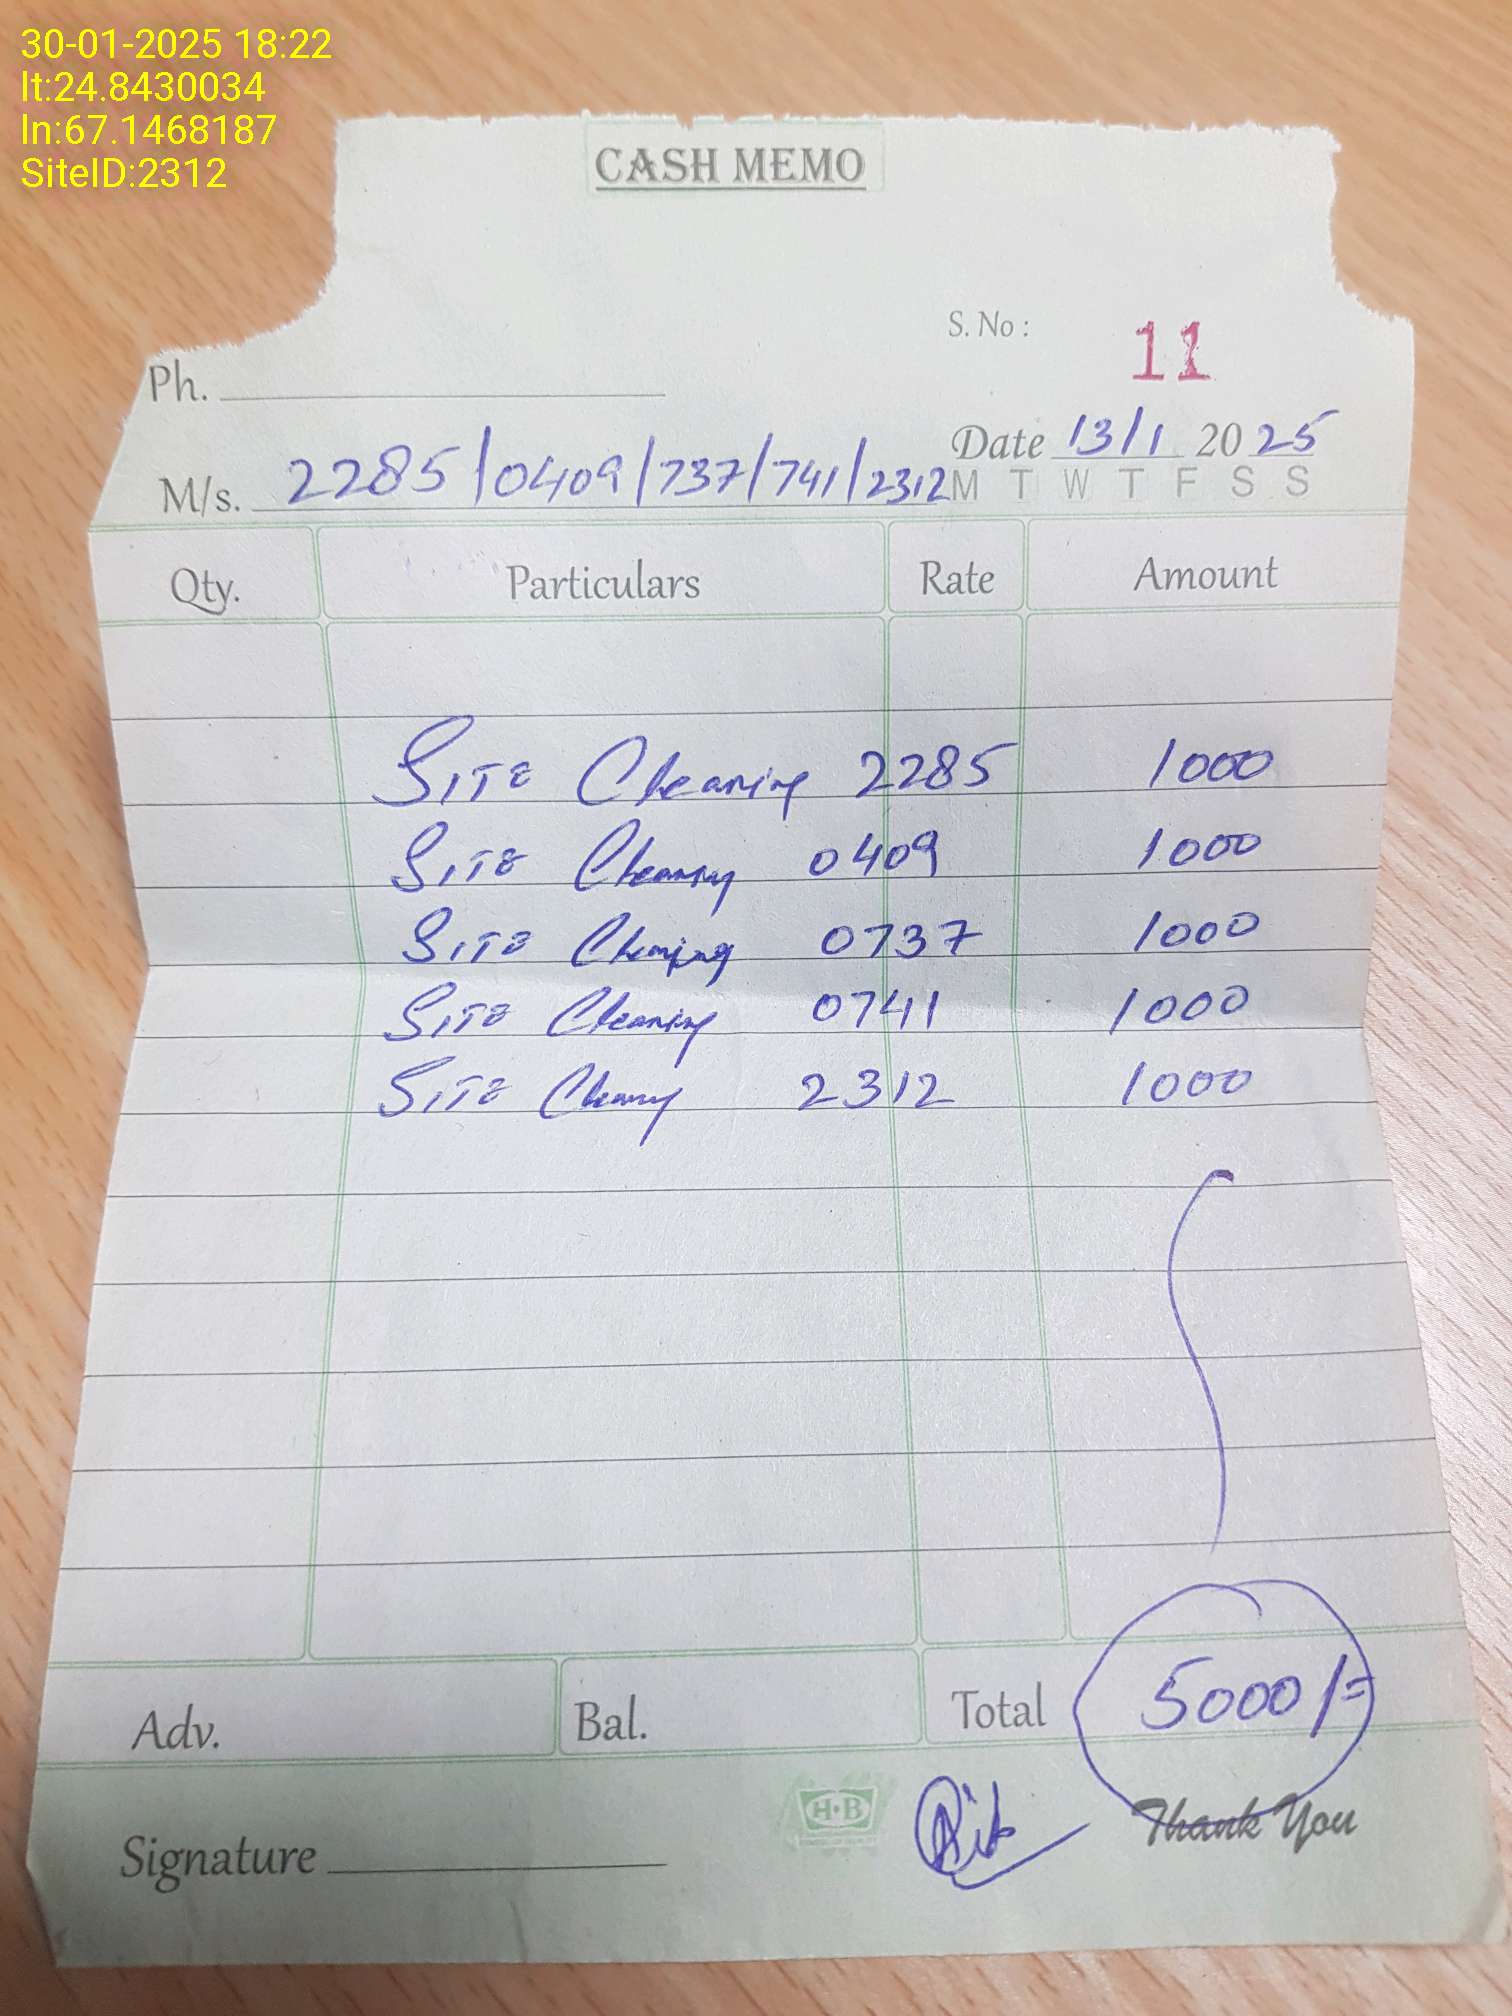 30-01-2025 18:22
lt:24.8430034
ln:67.1468187
SiteID:2312
CASH MEMO
S. No : 11
Ph.
Date 13/1 2025
M/s. 2285/0409/737/741/2312
M T W T F S S
Qty. Particulars Rate Amount
SITE Cleaning 2285 1000
SITE Cleaning 0409 1000
SITE Cleaning 0737 1000
SITE Cleaning 0741 1000
SITE Cleaning 2312 1000
Adv. Bal. Total 5000/=
H·B
Thank You
Signature